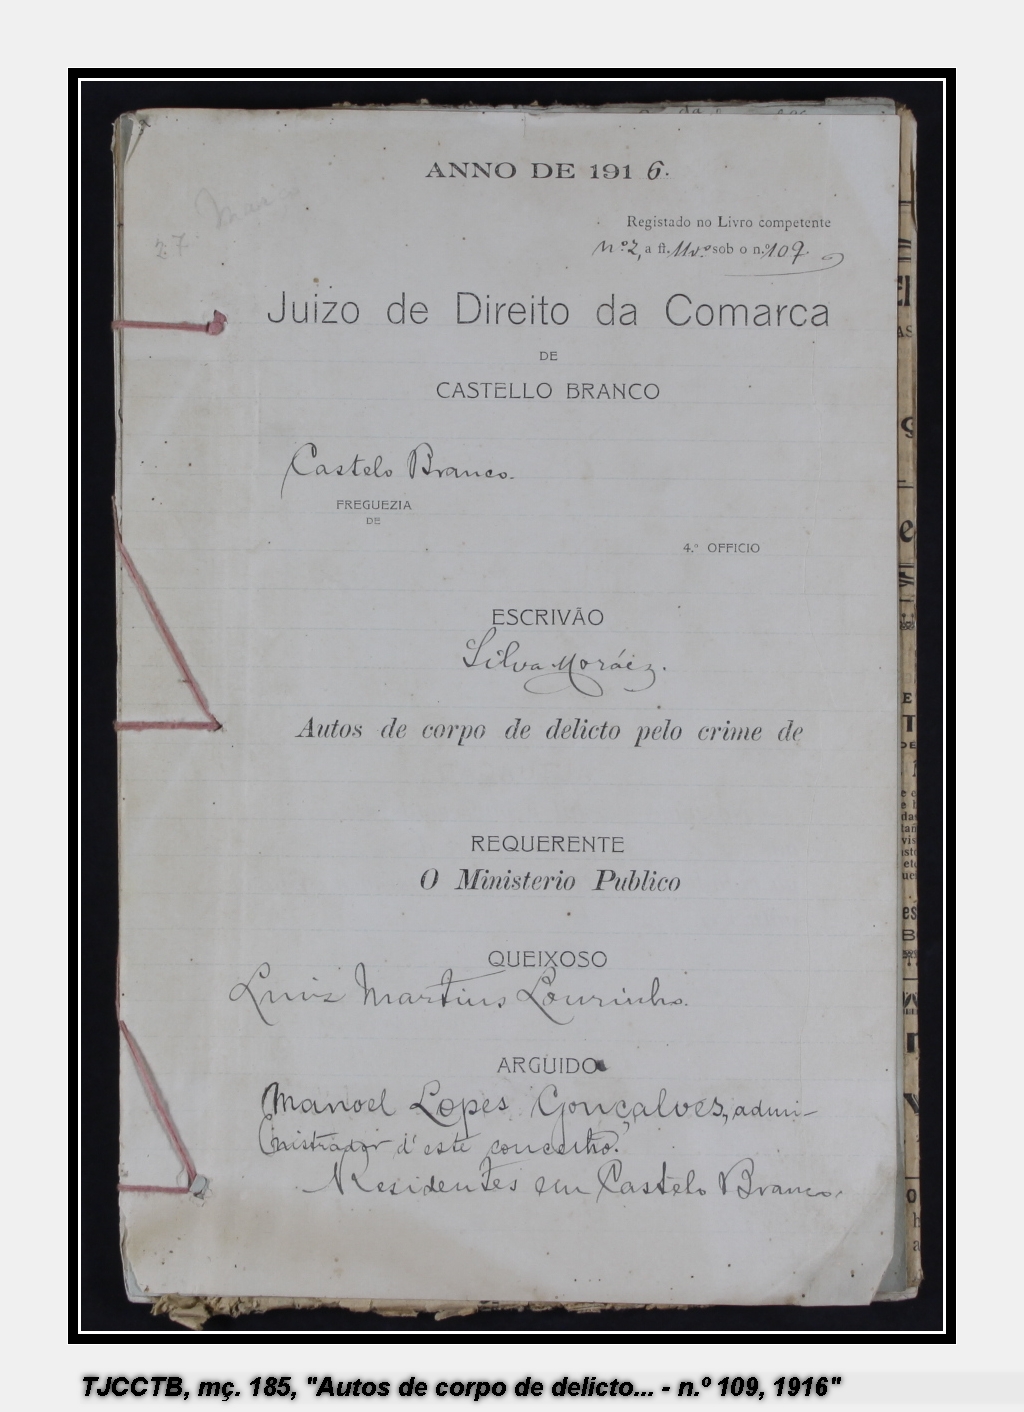 ANNO DE 1916.
Registado no Livro competente
nº 2, a fl. 11 v.º sob o n.º 109.
27
Juizo de Direito da Comarca
DE
CASTELLO BRANCO
Castelo Branco.
FREGUEZIA
DE
4.º OFFICIO
ESCRIVÃO
Silva Moráez.
Autos de corpo de delicto pelo crime de
REQUERENTE
O Ministerio Publico
QUEIXOSO
Luiz Martins Lourinho.
ARGUIDO
Manoel Lopes Gonçalves, admi-
nistrador d'este concelho.
Residentes em Castelo Branco.
TJCCTB, mç. 185, "Autos de corpo de delicto... - n.º 109, 1916"